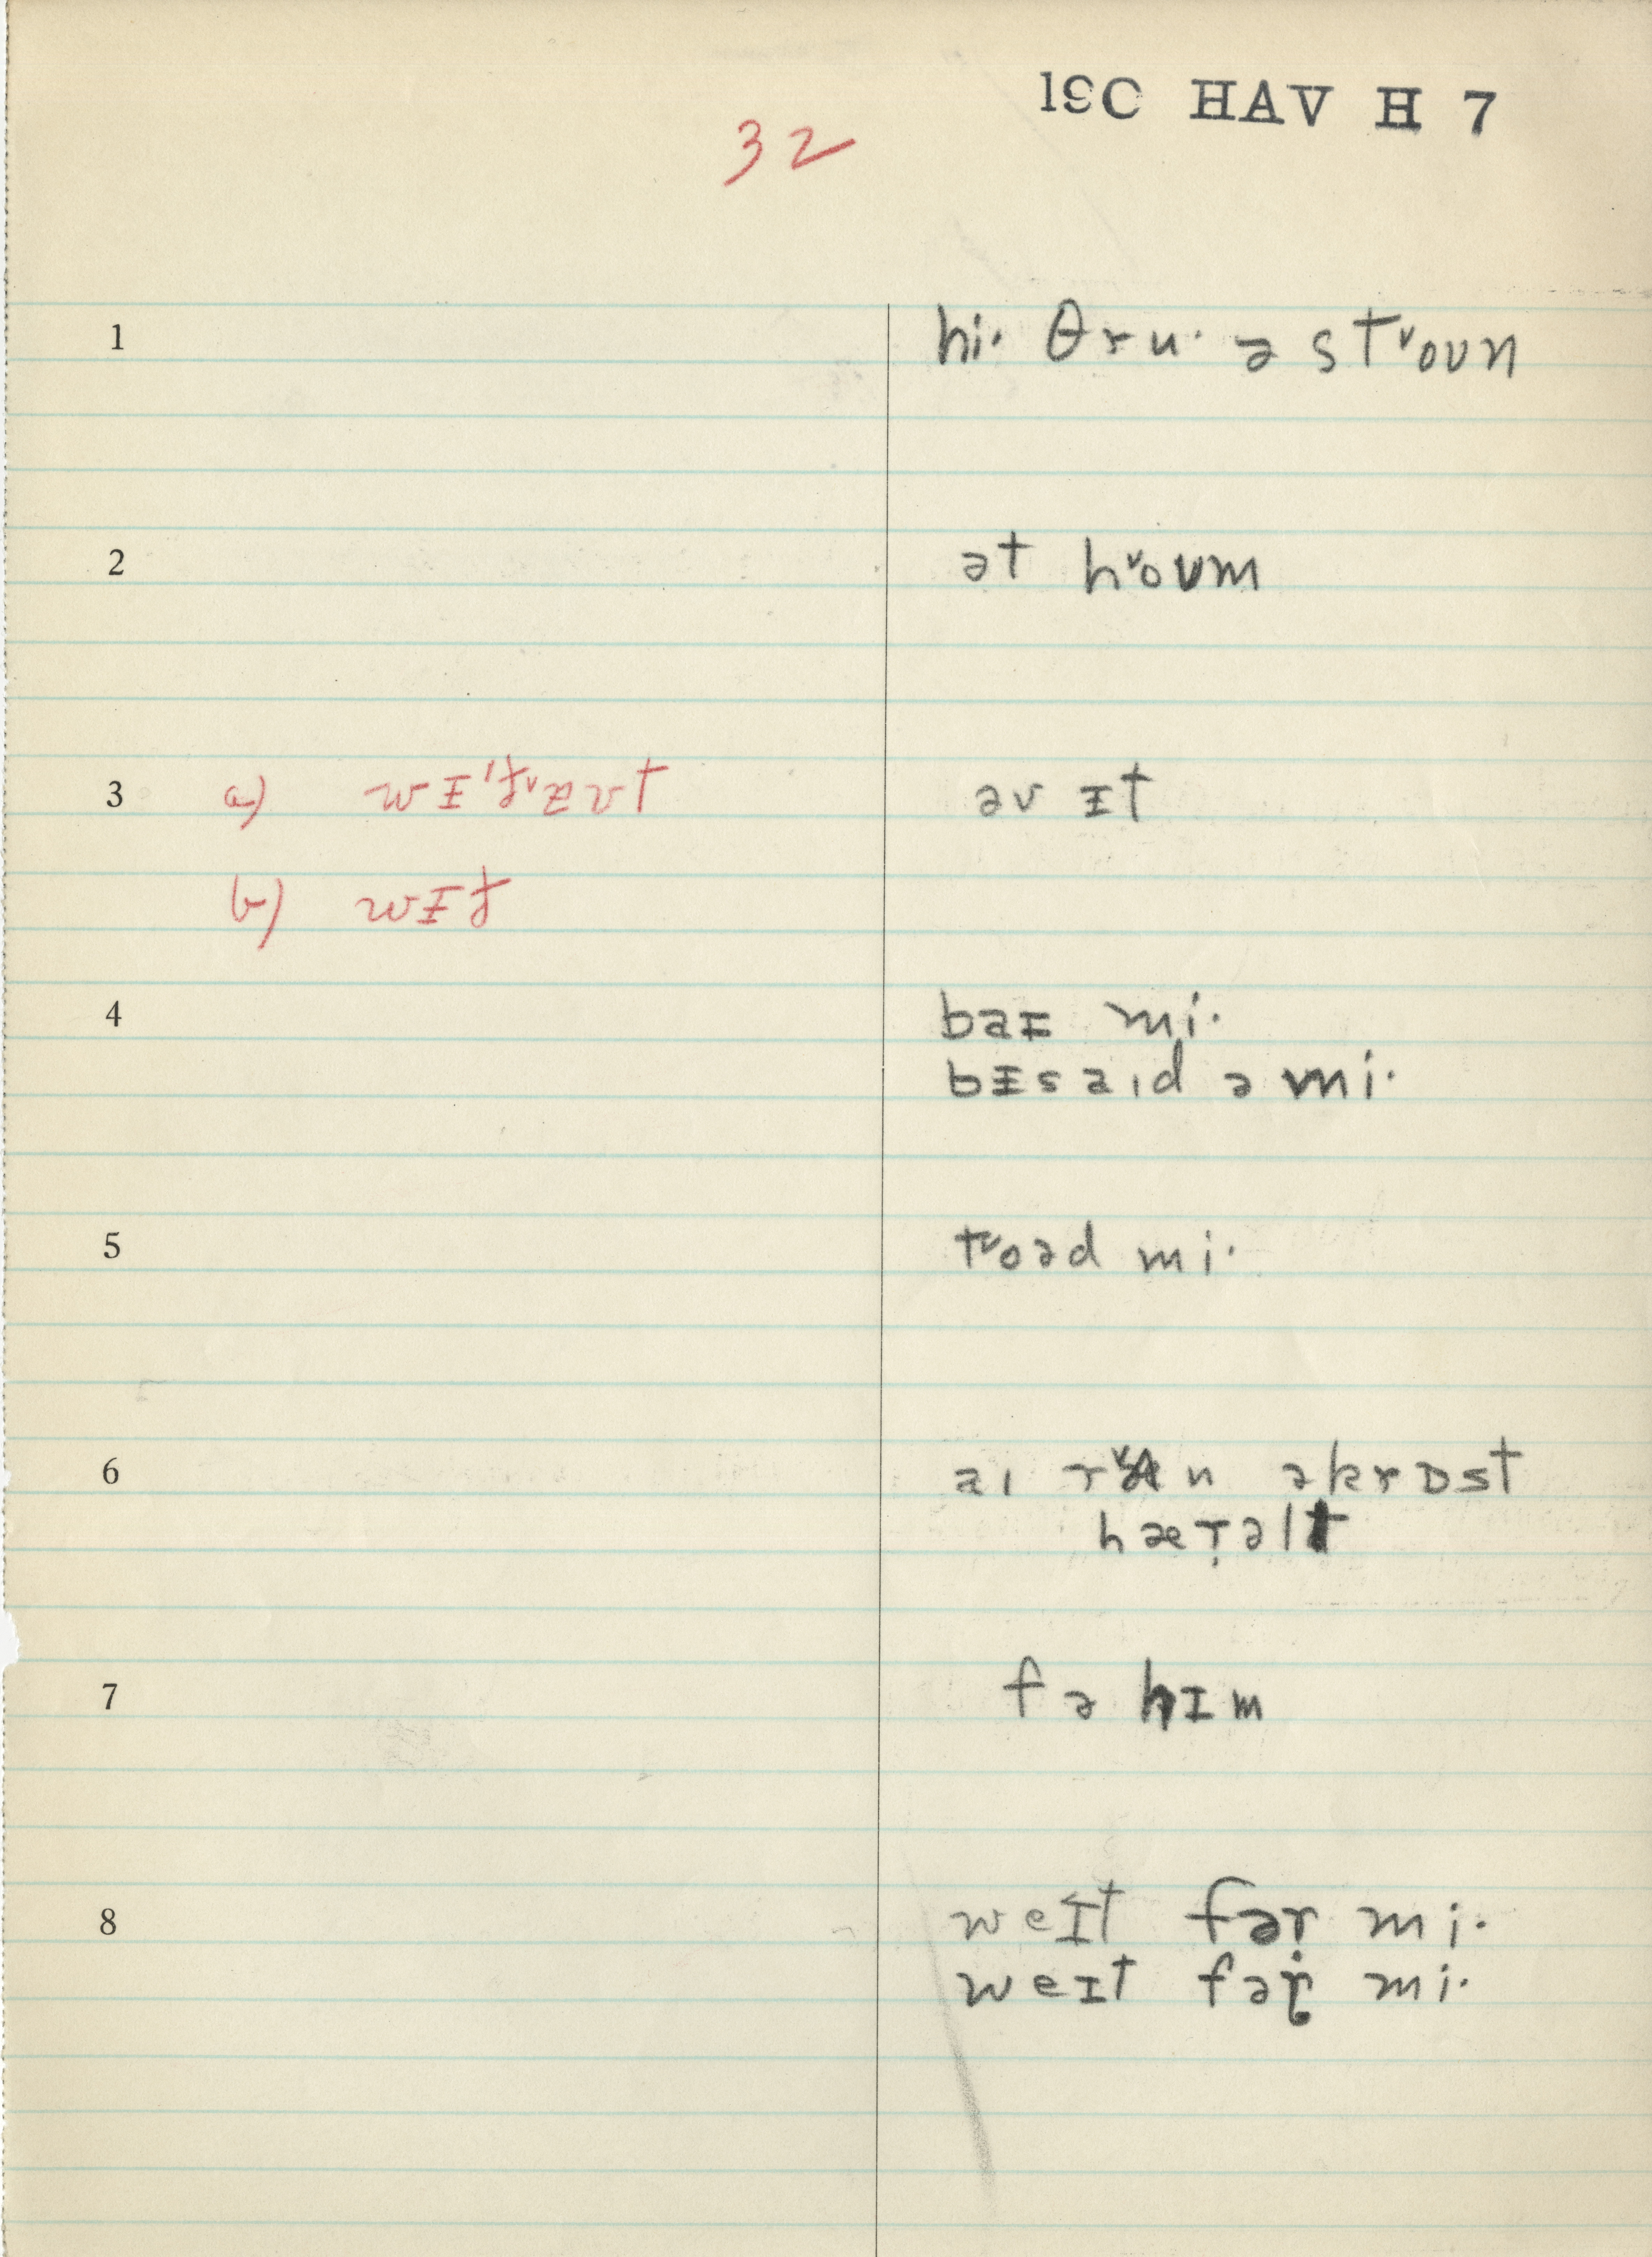 19C HAV H 7
32
1 hi· θru· ə stᵛoʊn
2 ət hᵛoʊm
3 a) wɪ'ðᵛɛʊt əv ɪt
b) wɪð
4 baɪ mi·
bɪsaɪd ə mi·
5 tᵛoəd mi·
6 aɪ rᵛʌn əkrɒst
hæṭəlt
7 fə hɪm
8 weɪt fəṛ mi·
weɪt fəṛ mi·